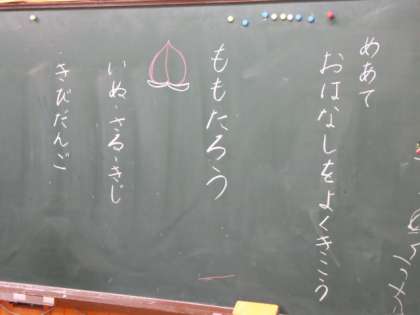 めあて
おはなしをよくきこう
ももたろう
いぬ・さる・きじ
・きびだんご